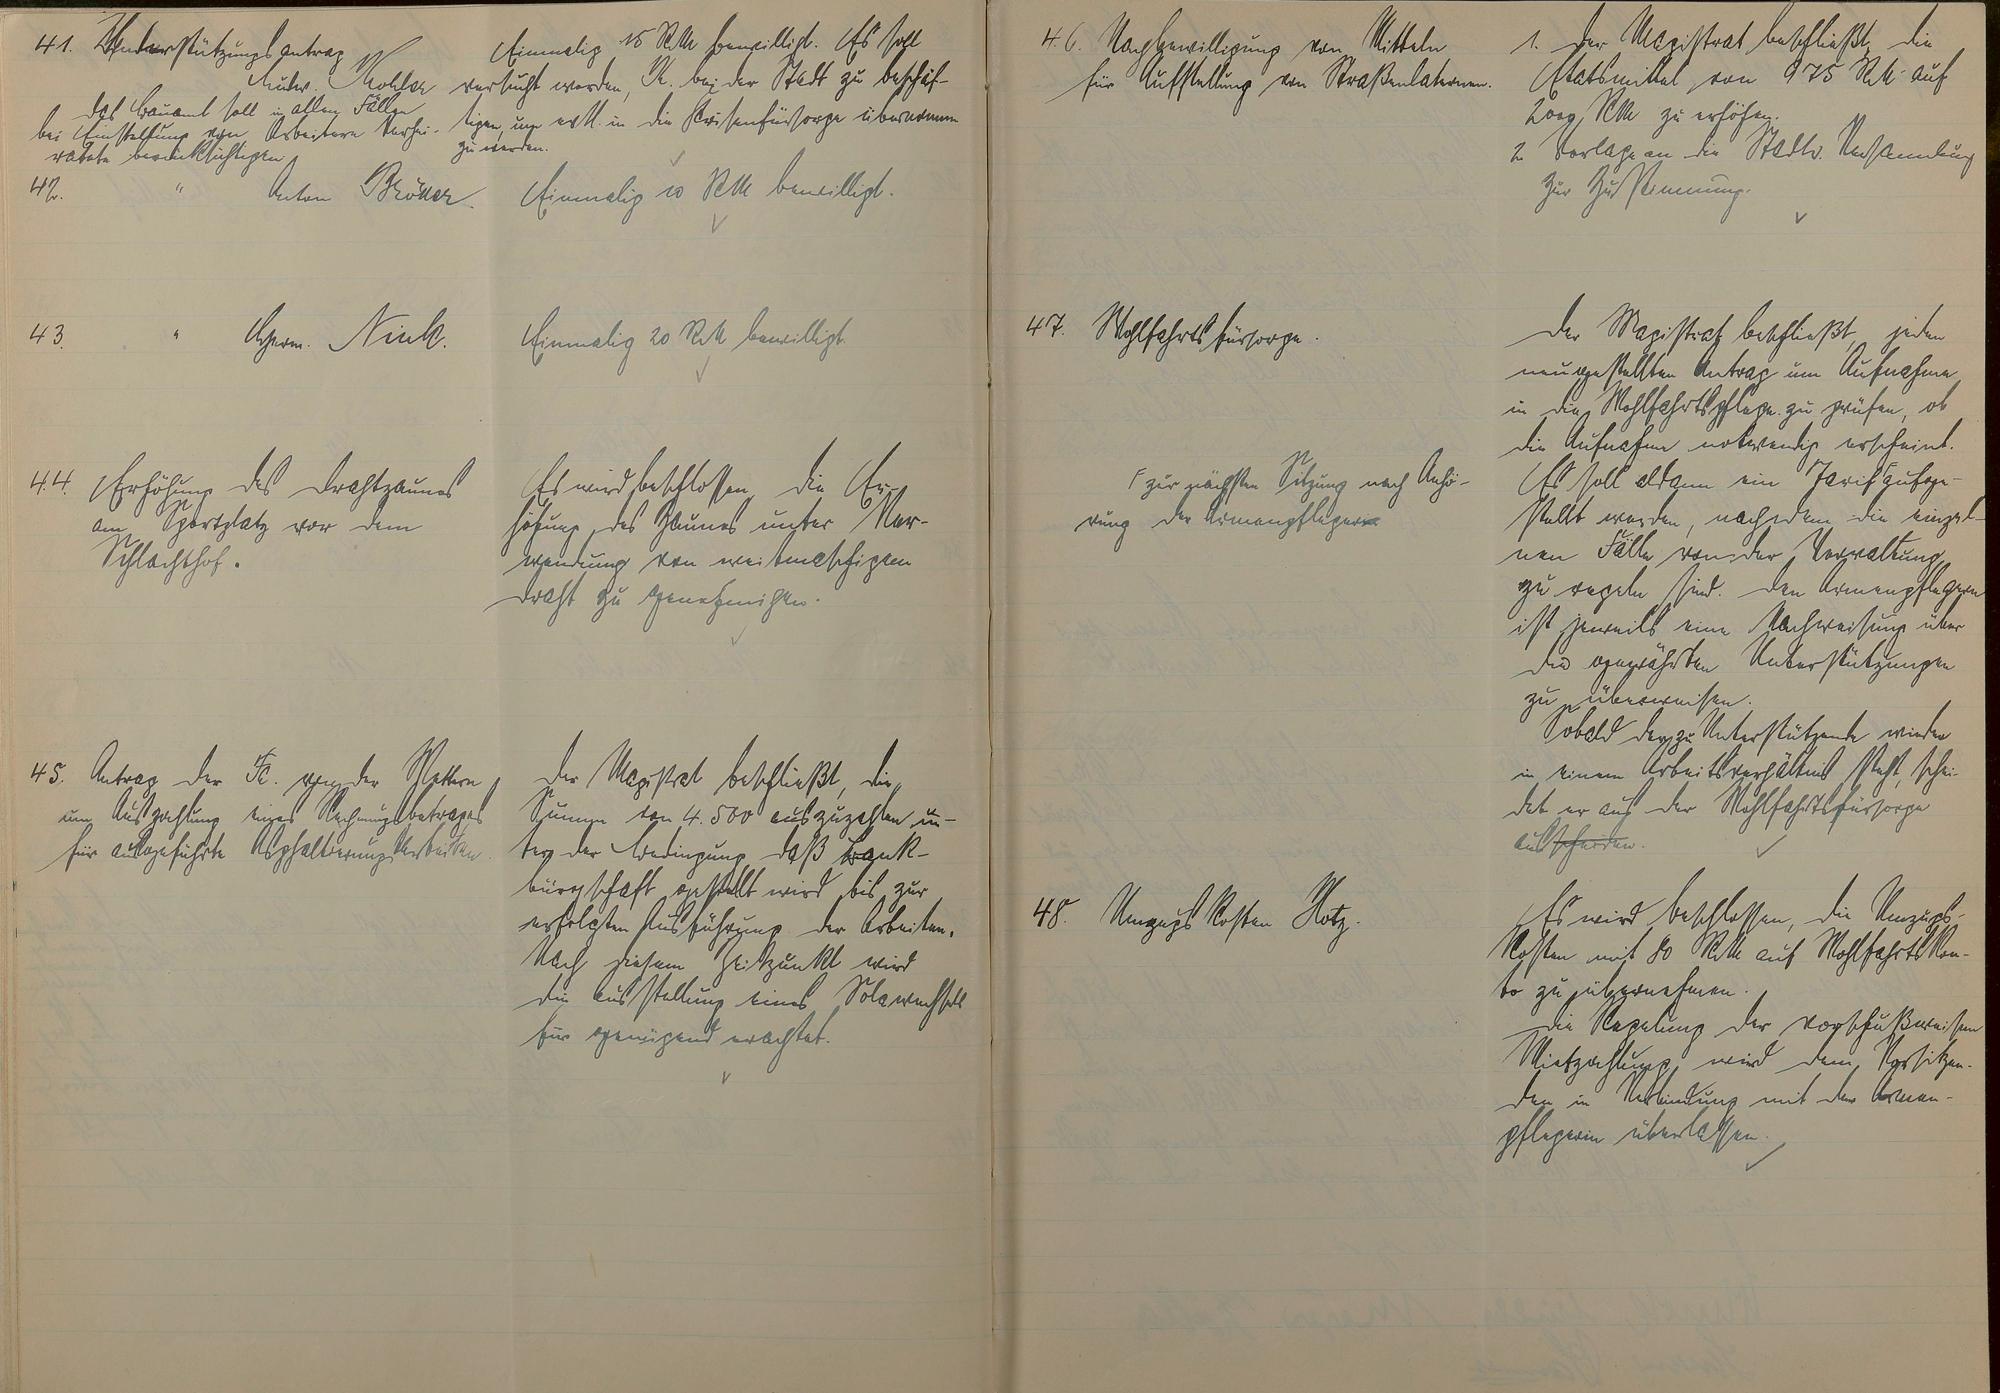 41. Unterstützungsantrag
Ludw. Kohler
Das Bauamt soll in allen Fällen
bei Einstellung von Arbeitern Verhei-
ratete berücksichtigen
Einmalig 15 RM bewilligt. Es soll
versucht werden, K. bei der Stadt zu beschäf-
tigen, um evtl. in die Krisenfürsorge übernommen
zu werden.
42. " Anton
Einmalig 10 RM bewilligt.
43. " Herm. Nink.
Einmalig 20 RM bewilligt.
44. Erhöhung des Drahtzaunes
am Sportplatz vor dem
Schlachthof.
Es wird beschlossen, die Er-
höhung des Zaunes unter Ver-
wendung von weitmaschigem
Draht zu genehmigen.
45. Antrag der Fa. von der Wettern
um Auszahlung eines Rechnungsbetrages
für ausgeführte Asphaltierungsarbeiten.
Der Magistrat beschließt, die
Summe von 4.500 auszuzahlen un-
ter der Bedingung, daß Bank-
bürgschaft gestellt wird bis zur
erfolgten Ausführung der Arbeiten.
Nach diesem Zeitpunkt wird
die Ausstellung eines Solawechsels
für genügend erachtet.
46. Nachbewilligung von Mitteln
für Aufstellung von Straßenlaternen.
1. Der Magistrat beschließt, die
Etatsmittel von 975 RM auf
2000 RM zu erhöhen.
2. Vorlage an die Stadtv. Versammlung
zur Zustimmung.
47. Wohlfahrtsfürsorge.
Der Magistrat beschließt, jeden
neugestellten Antrag um Aufnahme
in die Wohlfahrtspflege zu prüfen, ob
die Aufnahme notwendig erscheint.
Γ zur nächsten Sitzung nach Anhö-
rung der Armenpfleger
Es soll aldann ein Tarif Γ aufge-
stellt werden, nachdem die einzel-
nen Fälle von der Verwaltung
zu regeln sind. Den Armenpflegern
ist jeweils eine Nachweisung über
die gewährten Unterstützungen
zu überweisen.
Sobald der zu Unterstützende wieder
in einem Arbeitsverhältnis steht, schei-
det er aus der Wohlfahrtsfürsorge
ausscheiden.
48. Umzugskosten Klotz.
Es wird beschlossen, die Umzugs-
kosten mit 80 RM auf Wohlfahrtskon-
to zu übernehmen.
Die Regelung der vorschußweisen
Mietzahlung wird dem Vorsitzen-
den in Verbindung mit der Armen-
pflegerin überlassen.